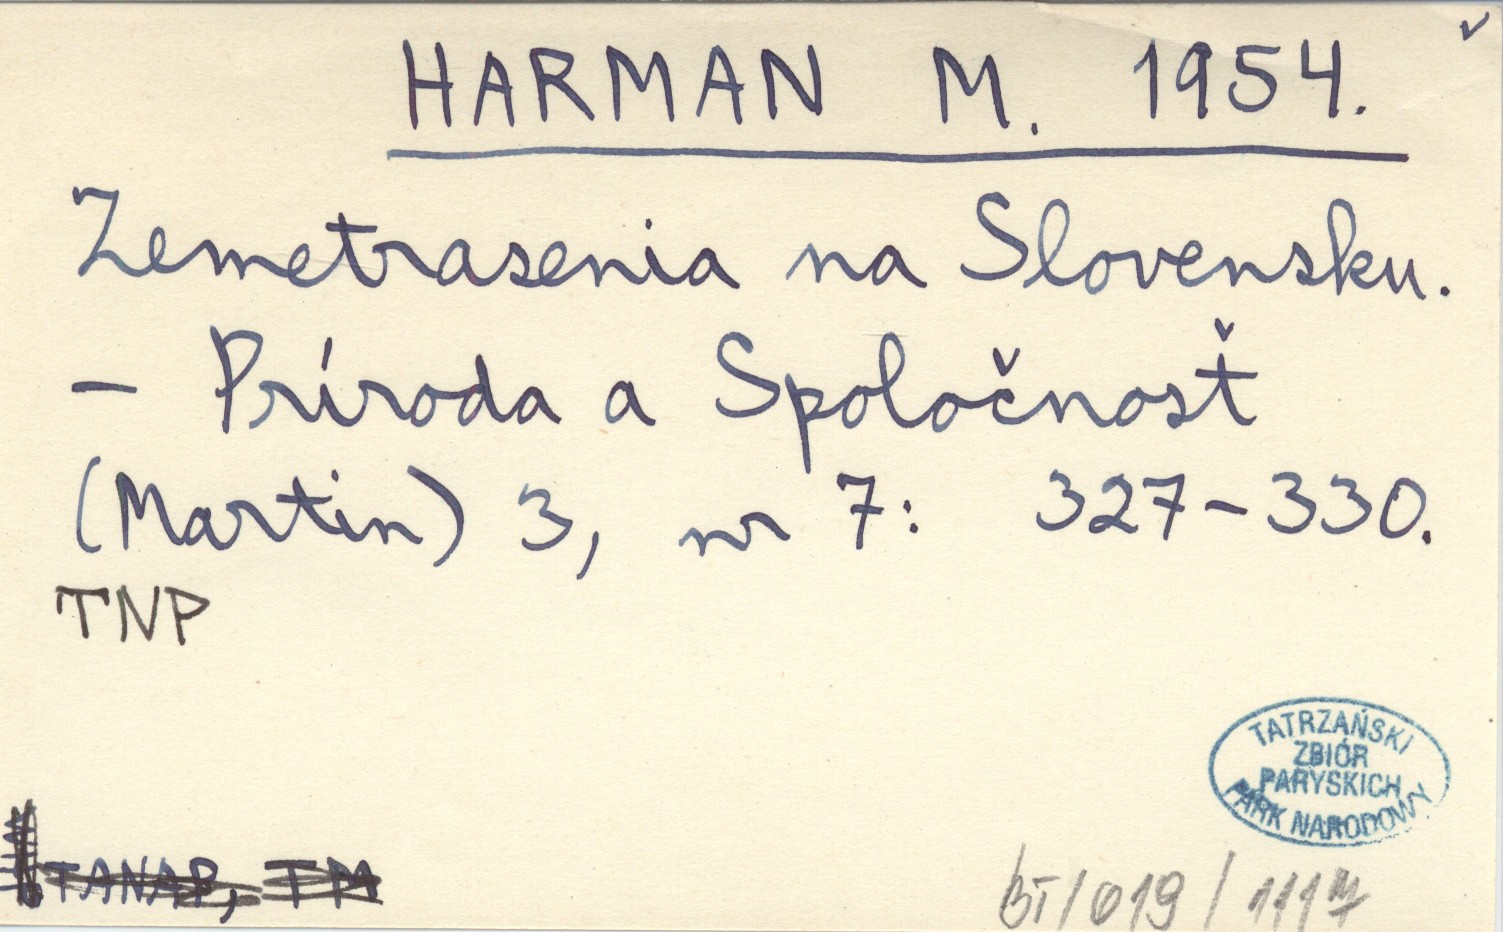 HARMAN M. 1954.
Zemetrasenia na Slovensku.
- Príroda a Spoločnosť
(Martin) 3, nr 7: 327-330.
TNP
TATRZAŃSKI
ZBIÓR
PARYSKICH
PARK NARODOWY
TANAP, TM
BT/019/1117